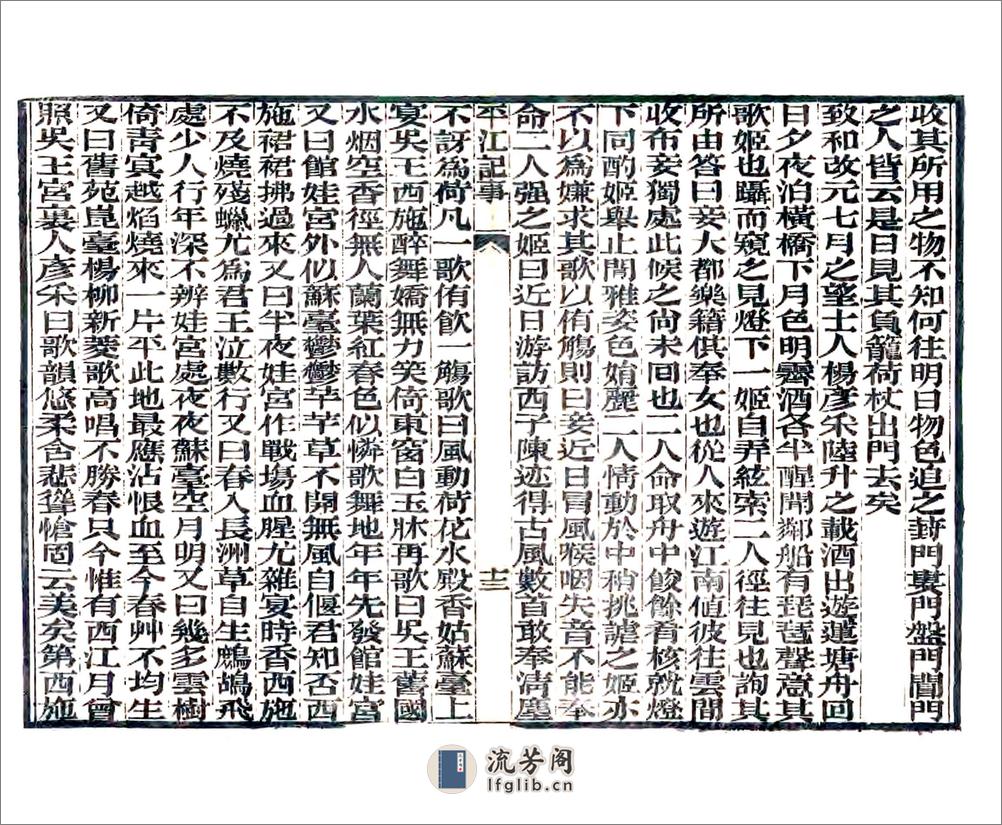 收其所用之物不知何往明日物色追之葑門婁門盤門閶門
之人皆云是日見其負籠荷杖出門去矣
致和改元七月之望士人楊彥采陸升之載酒出遊蓮塘舟回
日夕夜泊橫橋下月色明霽酒各半醒聞鄰船有琵琶聲意其
歌姬也躡而窺之見燈下一姬自弄絃索二人徑往見也詢其
所由答曰妾大都樂籍供奉女也從人來遊江南値彼往雲間
收布妾獨處此候之尚未囘也二人命取舟中餕餘肴核就燈
下同酌姬舉止閒雅姿色媚麗二人情動於中稍挑謔之姬亦
不以為嫌求其歌以侑觴則曰妾近日冒風喉咽失音不能奉
命二人强之姬曰近日游訪西子陳迹得古風數首敢奉清塵
平江記事
十三
不訝爲荷凡一歌侑飮一觴歌曰風動荷花水殿香姑蘇臺上
宴吳王西施醉舞嬌無力笑倚東窗白玉牀再歌曰吳王舊國
水烟空香徑無人蘭葉紅春色似憐歌舞地年年先發館娃宮
又曰館娃宮外似蘇臺鬱鬱芊芊草不開無風自偃君知否西
施裙裙拂過來又曰半夜娃宮作戰場血腥尤雜宴時香西施
不及燒殘蠟尤爲君王泣數行又曰春入長洲草自生鷓鴣飛
處少人行年深不辨娃宮處夜夜蘇臺空月明又曰幾多雲樹
倚青冥越焰燒來一片平此地最應沾恨血至今春艸不均生
又曰舊苑崑臺楊柳新菱歌高唱不勝春只今惟有西江月曾
照吳王宮裏人彥采曰歌韻悠柔含悲聳愴固云美矣第西施
流芳阁
lfglib.cn